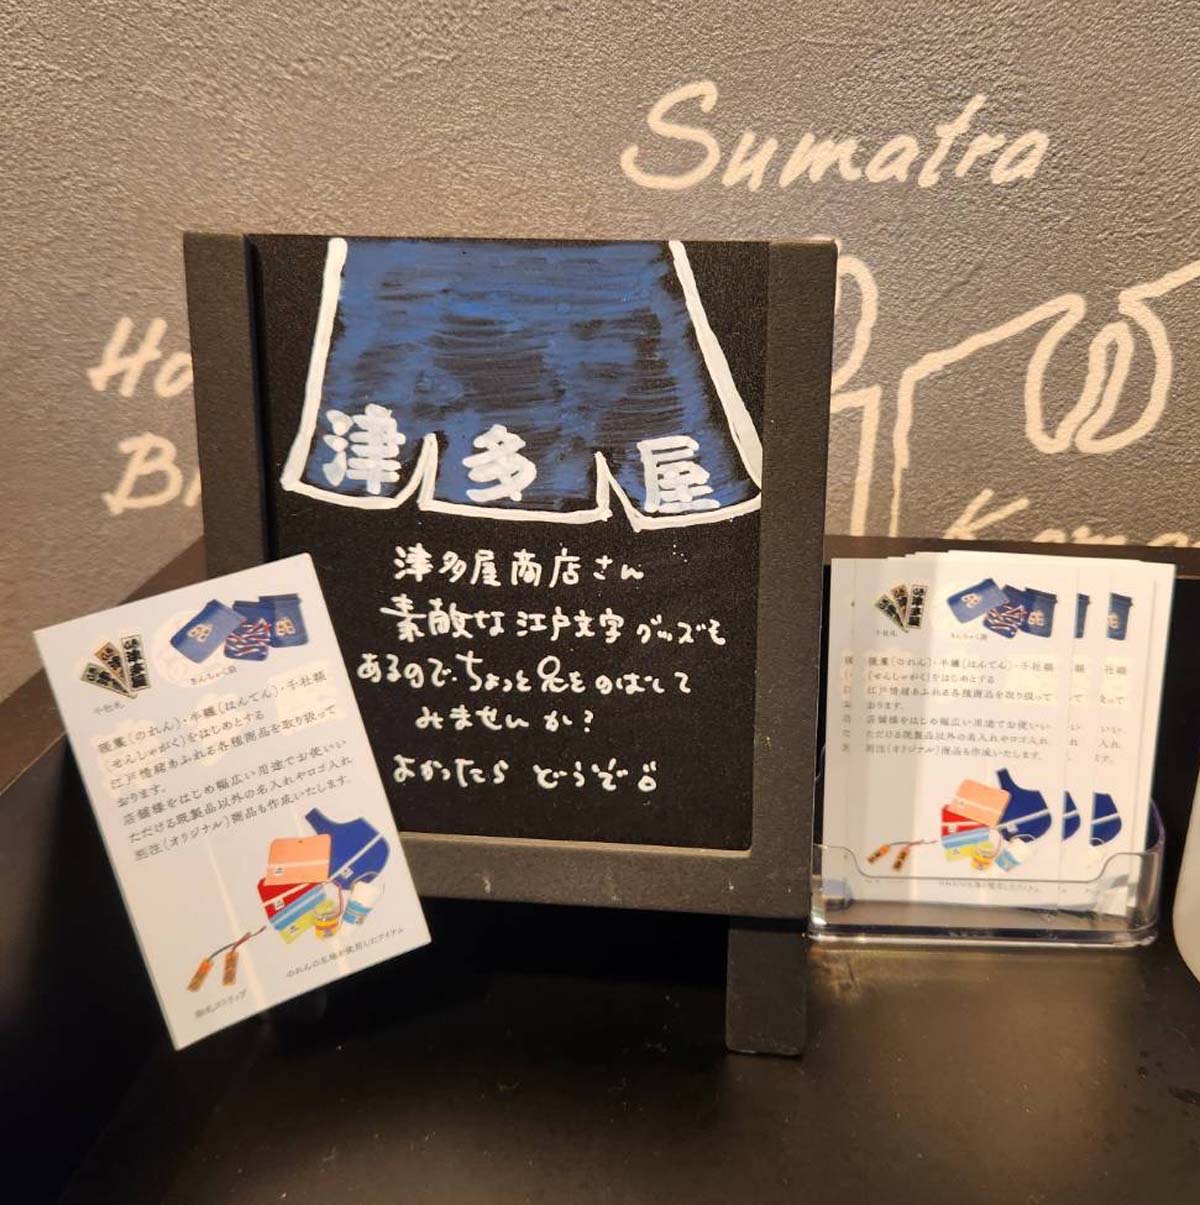 Sumatra
Ho
津多屋
津多屋商店さん
素敵な江戸文字グッズも
あるので、ちょっと足をのばして
みませんか?
よかったらどうぞ
千社札
きんちゃく袋
暖簾(のれん)・半纏(はんてん)・千社額
(せんしゃがく)をはじめとする
江戸情緒あふれる各種商品を取り扱って
おります。
店舗様をはじめ幅広い用途でお使いい
ただける既製品以外の名入れやロゴ入れ
別注(オリジナル)商品も作成いたします。
のれんの生地を使用したアイテム
千社札
きんちゃく袋
暖簾(のれん)・半纏(はんてん)・千社額
(せんしゃがく)をはじめとする
江戸情緒あふれる各種商品を取り扱って
おります。
店舗様をはじめ幅広い用途でお使いい
ただける既製品以外の名入れやロゴ入れ
別注(オリジナル)商品も作成いたします。
のれんの生地を使用したアイテム